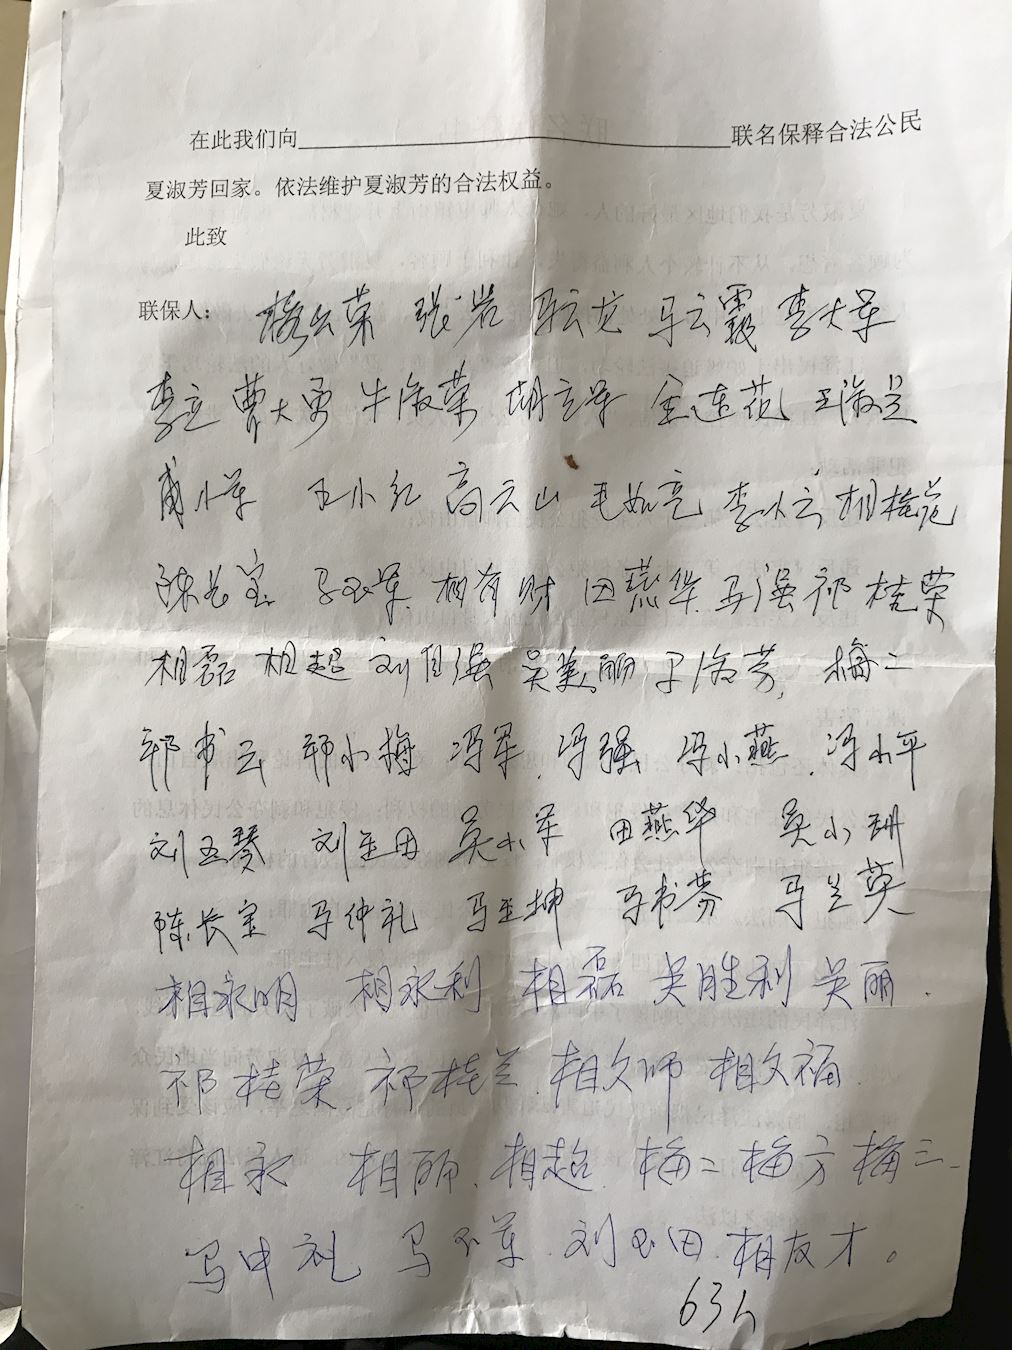 在此我们向____________________联名保释合法公民
夏淑芳回家。依法维护夏淑芳的合法权益。
此致
联保人: 张岩 马云龙 马云霞 李大军
李立 曹大勇 牛淑荣 胡立军 金连花 王淑兰
小军 王小红 高云山 毛如亮 李小云 相桂花
相有财 田燕华 马强 祁桂荣
相磊 相超 刘自强 吴美丽 梅二
祁书云 祁小梅 冯军 冯强 冯小燕 冯小平
刘玉琴 刘玉田 吴小军 田燕华 吴小玥
陈长宝 马仲礼 马玉坤 马书芬 马兰英
相永明 相永利 相磊 吴胜利 吴丽.
祁桂荣. 祁桂兰. 相文师 相文福.
相永 相丽. 相超. 梅二 梅方 梅三
马中礼 马玉军. 刘玉田. 相友才。
63人